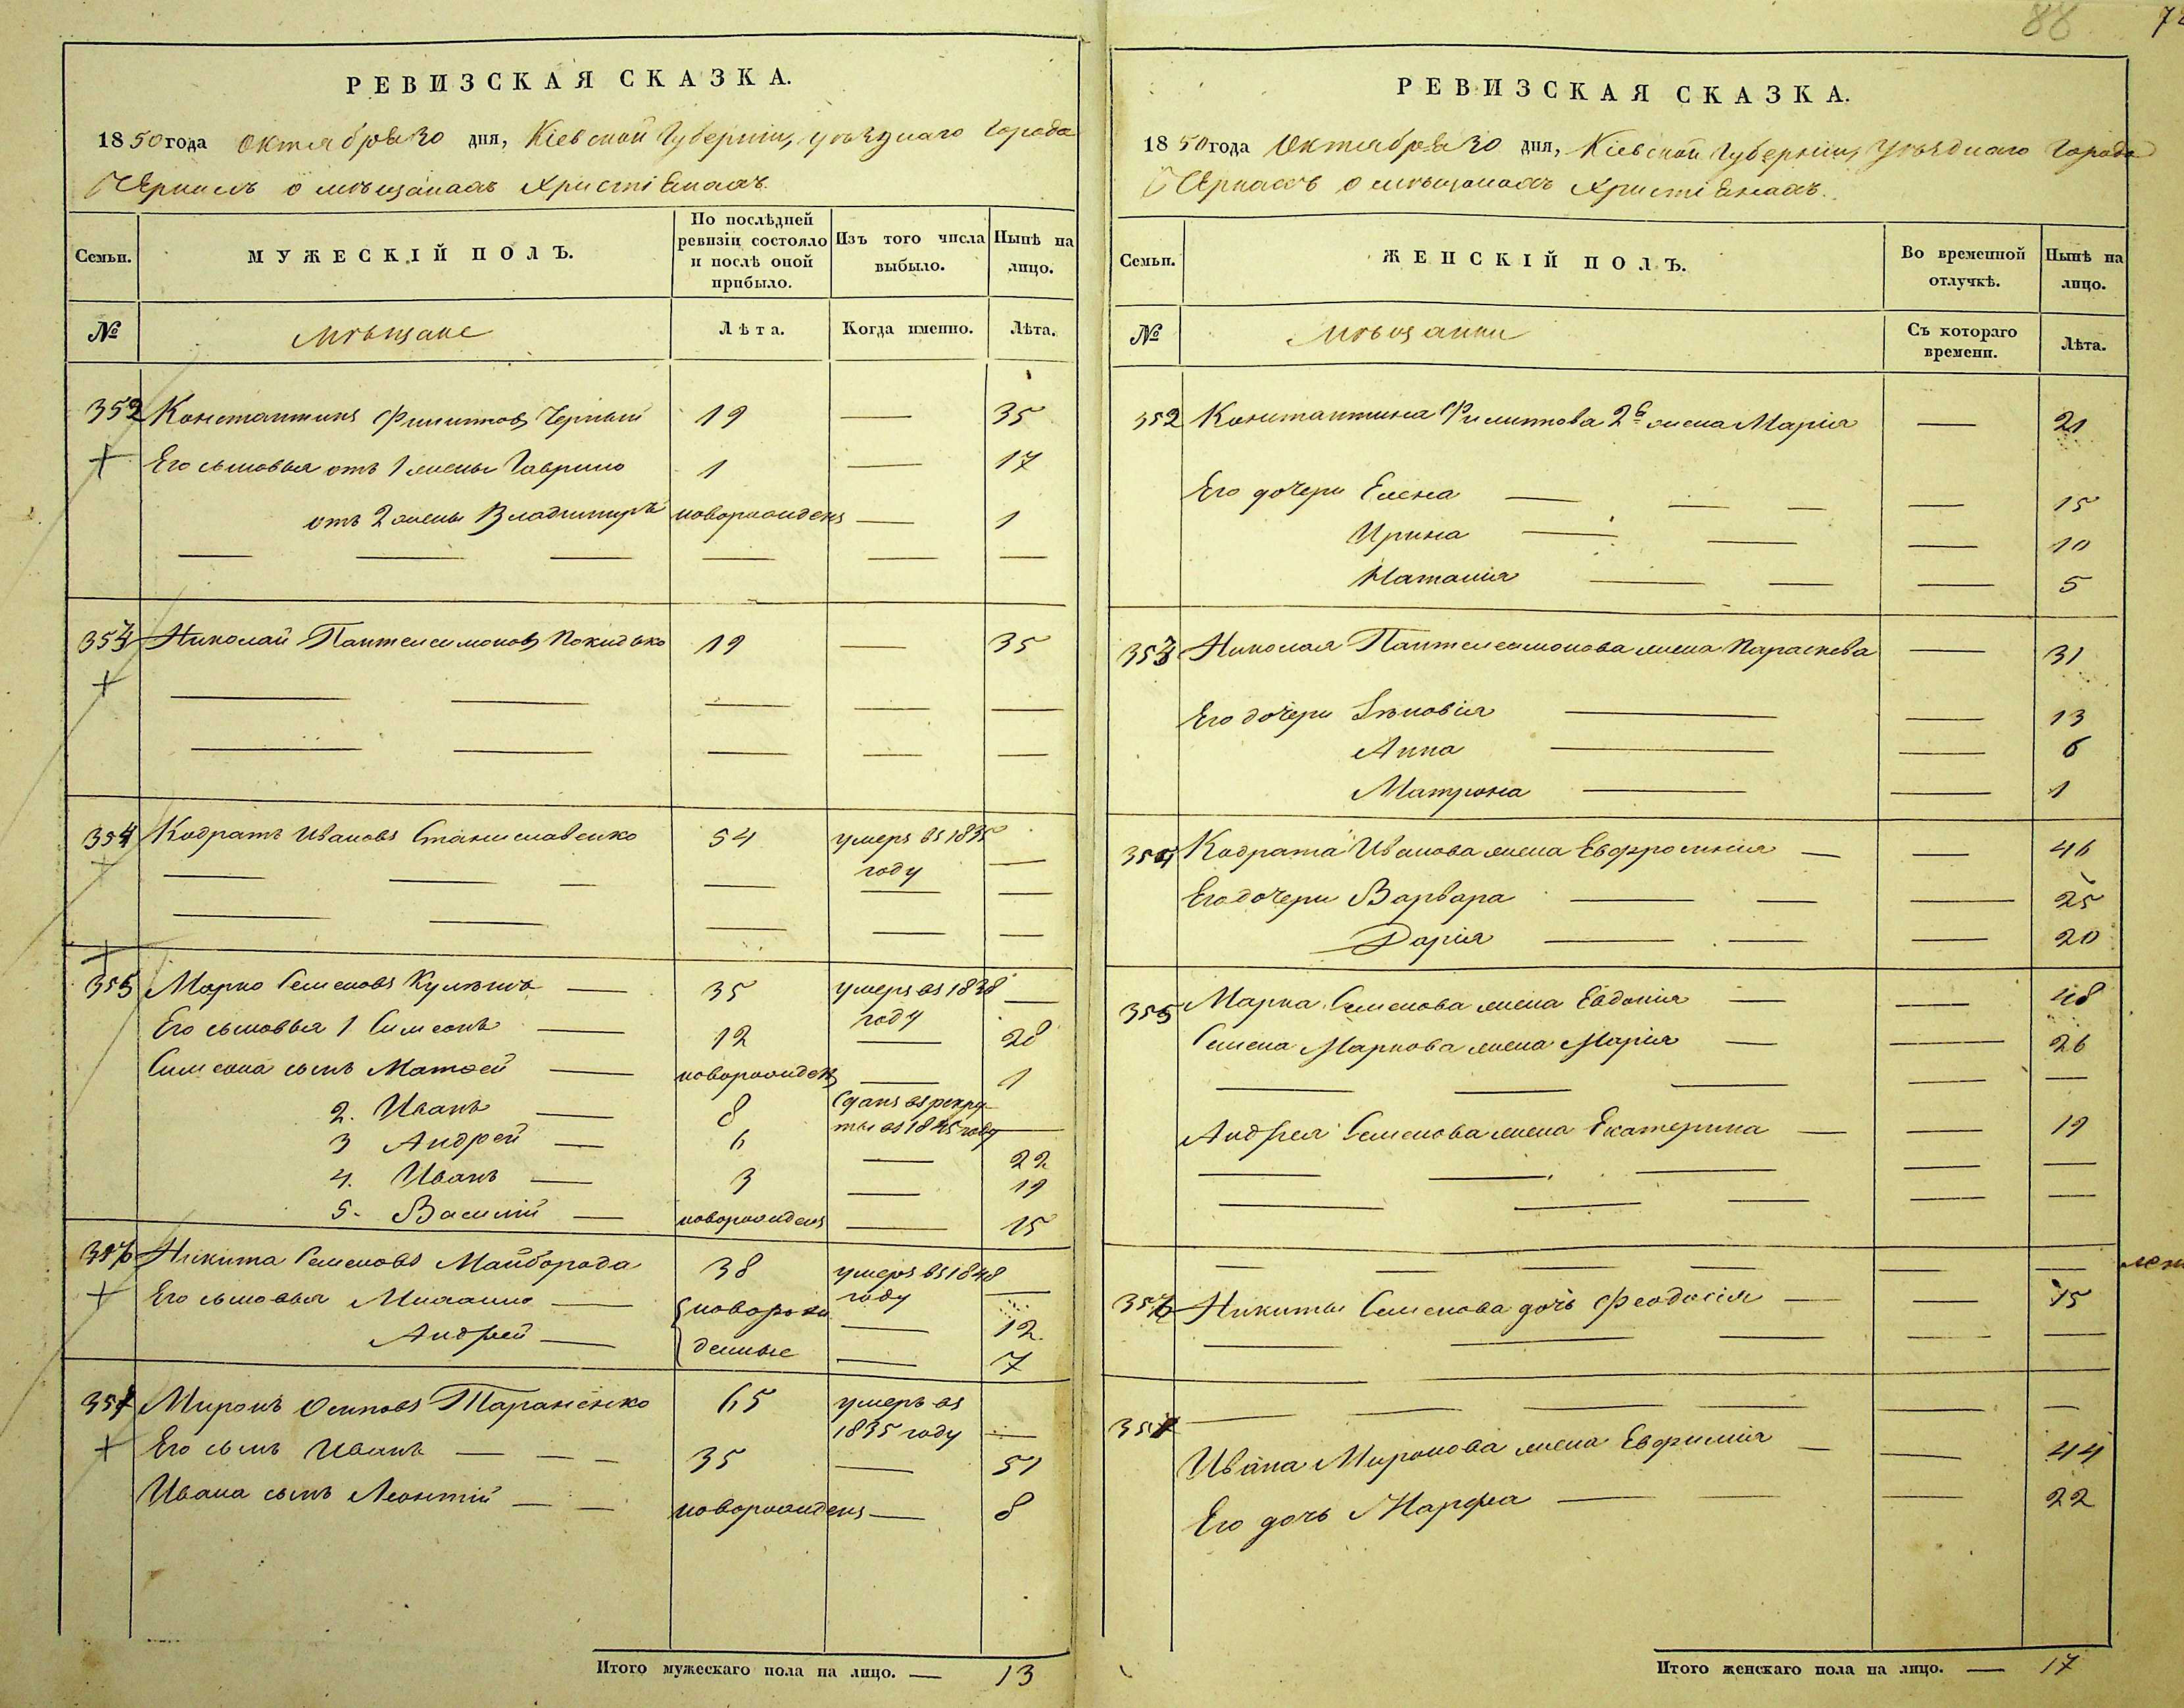 88
72
РЕВИЗСКАЯ СКАЗКА.
1850 года Октября 30 дня, Кіевской Губерніи, уѣзднаго города
Черкасъ о мѣщанахъ Христіанахъ.
Семьи.
МУЖЕСКІЙ ПОЛЪ.
По послѣдней ревизіи состояло и послѣ оной прибыло.
Изъ того числа выбыло.
Нынѣ на лицо.
№
Мѣщане
Лѣта.
Когда именно.
Лѣта.
352 Константинъ Филиповъ Черный 19 — 35
Его сыновья отъ 1 жены Гаврило 1 — 17
отъ 2 жены Владимиръ новорожденъ — 1
353 Николай Пантелеимоновъ Покидько 19 — 35
354 Кодратъ Ивановъ Станиславенко 54 умеръ въ 1835 году —
355 Марко Семеновъ 35 умеръ въ 1838 году —
Его сыновья 1 Симеонъ — 12 — 28
Симеона сынъ Матвей — новорожденъ — 1
2. Иванъ — 8 сданъ въ рекруты въ 1845 году —
3 Андрей — 6 — 22
4. Иванъ — 3 — 19
5. Василій — новорожденъ — 15
356 Никита Семеновъ Майборода 38 умеръ въ 1848 году —
Его сыновья Михаило — новорож — 12
Андрей — денные — 7
357 Миронъ Осиповъ Тараненко 65 умеръ въ 1835 году —
Его сынъ Иванъ — 35 — 51
Ивана сынъ Леонтій — новорожденъ — 8
Итого мужескаго пола на лицо. — 13
РЕВИЗСКАЯ СКАЗКА.
1850 года Октября 30 дня, Кіевской Губерніи, Уѣзднаго Города
Черкасъ о мѣщанахъ Христіанахъ.
Семьи.
ЖЕНСКІЙ ПОЛЪ.
Во временной отлучкѣ.
Нынѣ на лицо.
№
Мѣщанки
Съ котораго времени.
Лѣта.
352 Константина Филипова 2я жена Марія — 21
Его дочери Елена — 15
Ирина — 10
Наталія — 5
353 Николая Пантелеимонова жена Параскева — 31
Его дочери Зѣновія — 13
Анна — 6
Матрона — 1
354 Кодрата Иванова жена Евфросинія — 46
Его дочери Варвара — 25
Дарія — 20
355 Марка Семенова жена Евдокія — 48
Семена Маркова жена Марія — 26
Андрея Семенова жена Екатерина — 19
356 Никиты Семенова дочь Феодосія — 15
357
Ивана Миронова жена Евфимія — 44
Его дочь Марфа — 22
Итого женскаго пола на лицо. — 17